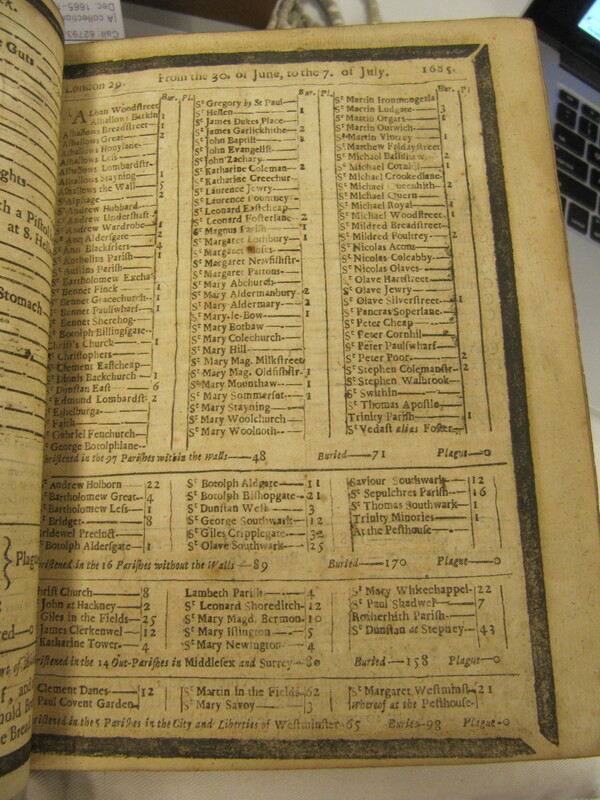 London 29. From the 30. of June, to the 7. of July. 1685.
Bur. Pl. Bur. Pl. Bur. Pl
Alban Woodstreet
Alhallows Barkin 1
Alhallows Breadstreet 1
Alhallows Great 2
Alhallows Honylane
Alhallows Less
Alhallows Lombardstr
Alhallows Stayning 1
Alhallows the Wall 5
St Alphage 2
St Andrew Hubbard
St Andrew Undershaft
St Andrew Wardrobe 1
St Ann Aldersgate 2
St Ann Blackfriers 4
St Antholins Parish 1
St Austins Parish
St Bartholomew Excha
St Bennet Finck 1
St Bennet Gracechurch 1
St Bennet Paulswharf 1
St Bennet Sherehog
St Botolph Billingsgate
Christ's Church 1
St Christophers
St Clement Eastcheap
St Dionis Backchurch 1
St Dunstan East 6
St Edmund Lombardst 2
St Ethelburga
St Faith
St Gabriel Fenchurch
St George Botolphlane
St Gregory by St Paul
St Hellen 1
St James Dukes Place
St James Garlickhithe 2
St John Baptist 1
St John Evangelist
St John Zachary
St Katharine Coleman 2
St Katharine Creechur
St Laurence Jewry
St Laurence Pountney
St Leonard Eastcheap
St Leonard Fosterlane 2
St Magnus Parish
St Margaret Lothbury 1
St Margaret Moses
St Margaret Newfishstr
St Margaret Pattons
St Mary Abchurch
St Mary Aldermanbury 2
St Mary Aldermary 2
St Mary-le-Bow 1
St Mary Bothaw
St Mary Colechurch
St Mary Hill
St Mary Mag. Milkstreet
St Mary Mag. Oldfishstr 1
St Mary Mounshaw 1
St Mary Sommerset 1
St Mary Stayning
St Mary Woolchurch
St Mary Woolnoth
St Martin Ironmongerla
St Martin Ludgate 3
St Martin Orgars 1
St Martin Outwich
St Martin Vintrey 1
St Matthew Fridaystreet
St Michael Bassishaw 2
St Michael Cornhil 1
St Michael Crookedlane
St Michael Queenhith 2
St Michael Quern
St Michael Royal 1
St Michael Woodstreet 1
St Mildred Breadstreet
St Mildred Poultrey 2
St Nicolas Acons
St Nicolas Coleabby
St Nicolas Olaves
St Olave Hartstreet
St Olave Jewry
St Olave Silverstreet 1
St Pancras Soperlane
St Peter Cheap
St Peter Cornhil
St Peter Paulswharf
St Peter Poor 2
St Stephen Colemanstr 2
St Stephen Walbrook
St Swithin
St Thomas Apostle
Trinity Parish 1
St Vedast alias Foster
ristened in the 97 Parishes within the walls 48 Buried 71 Plague 0
St Andrew Holborn 22
Bartholomew Great 4
Bartholomew Less 1
Bridget 8
Bridewel Precinct
Botolph Aldersgate 1
St Botolph Aldgate 11
St Botolph Bishopgate 21
St Dunstan West 3
St George Southwark 12
St Giles Cripplegate
St Olave Southwark 25
Saviour Southwark 12
St Sepulchres Parish 16
St Thomas Southwark 1
Trinity Minories 1
At the Pesthouse
ristened in the 16 Parishes without the Walls 89 Buried 170 Plague 0
hrist Church 8
John at Hackney 2
Giles in the Fields 25
James Clerkenwel 12
Katharine Tower 4
Lambeth Parish 4
St Leonard Shoreditch 12
St Mary Magd. Bermon 10
St Mary Islington 5
St Mary Newington 4
St Mary Whitechappel 22
St Paul Shadwel 7
Rotherhith Parish
St Dunstan at Stepney 43
ristened in the 14 Out-Parishes in Middlesex and Surrey 80 Buried 158 Plague 0
Clement Danes 12
Paul Covent Garden
St Martin in the Fields 62
St Mary Savoy 3
St Margaret Westminst 21
whereof at the Pesthouse
ristened in the 5 Parishes in the City and Liberties of Westminster 65 Buried 98 Plague 0